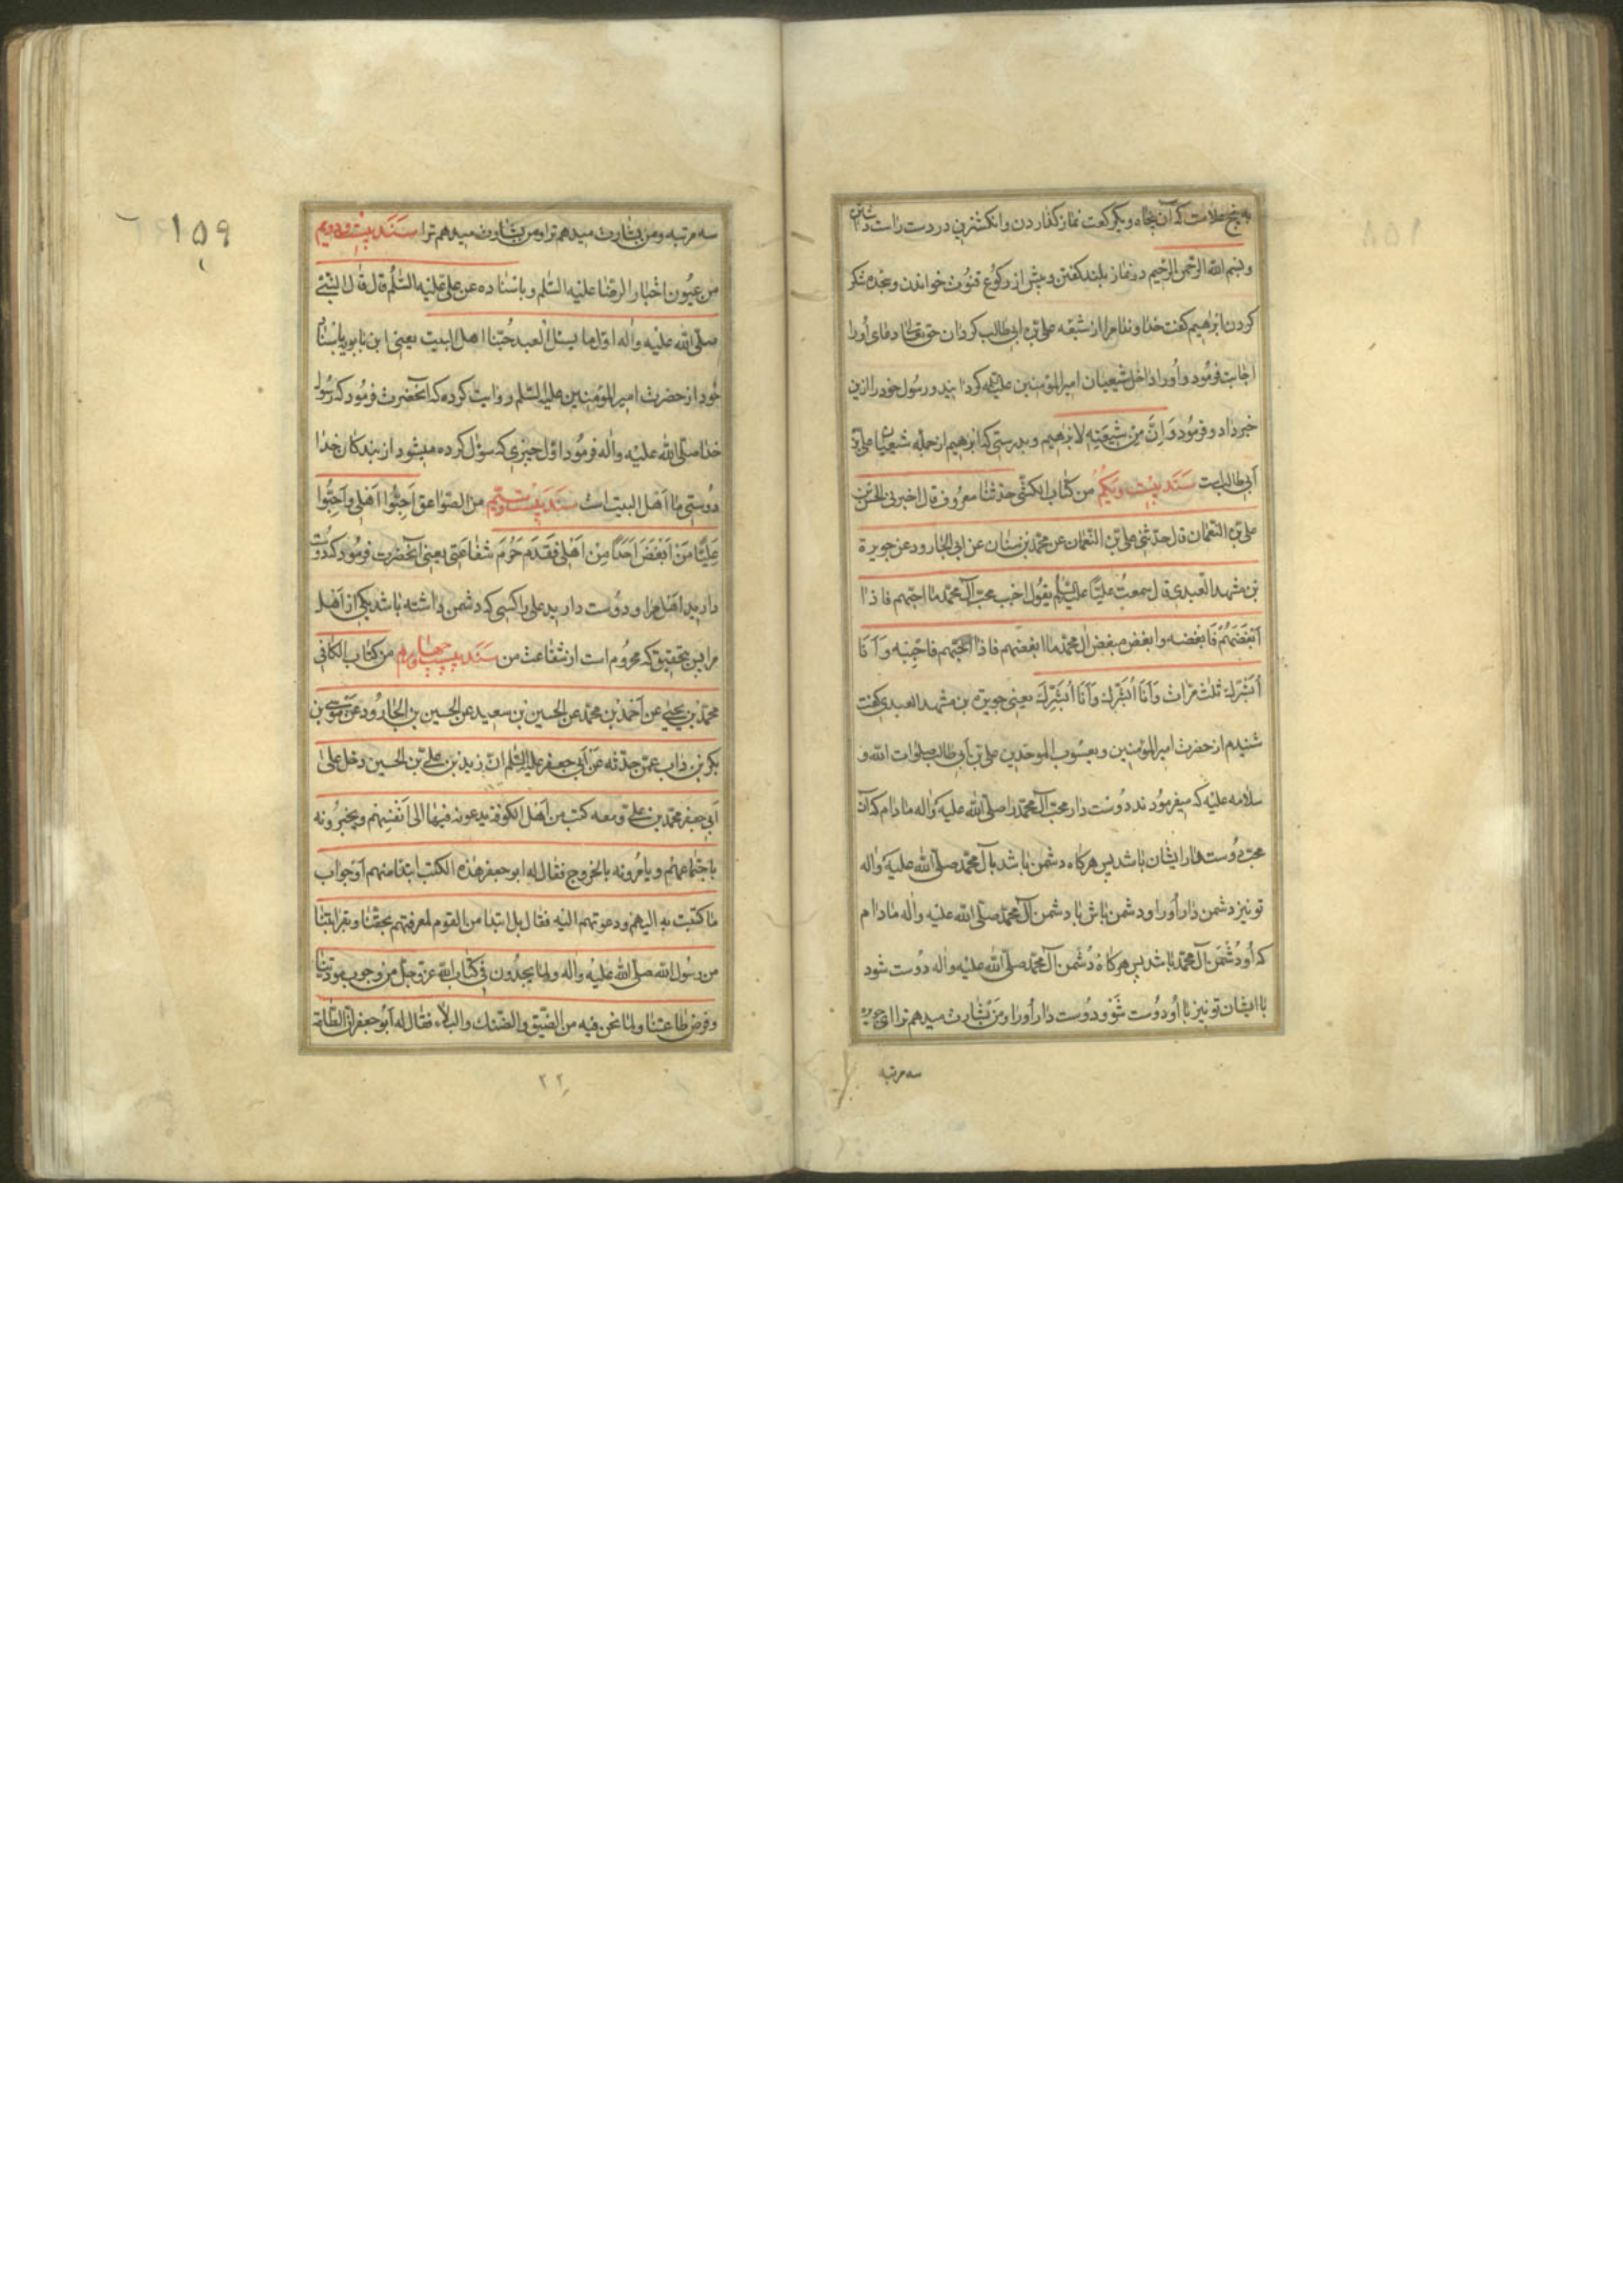 به پنج علامت که آن پنجاه و یک رکعت نماز گذاردن و انکشترین در دست راست داشتن
و بسم الله الرحمن الرحیم در نماز بلند کفتن و پیش از رکوع قنوت خواندن و سجده شکر
کردن ابراهیم کفت خداوندا مرا از شیعه علی بن ابی طالب کردان حق تعالی دعای او را
اجابت فرمود و او را داخل شیعیان امیر المؤمنین علیه کردانید و رسول خود را ازین
خبر داد و فرمود وَاِنَّ مِن شیعَتِهِ لابرهیم و بدرستی که ابرهیم از جمله شیعیان علی بن
أبی طالبست سَنَد بیست ویکم من کتاب الکشی حدثنا معروف قال اخبرنی الحسن بن
علی بن النعمان قال حدثنی علی بن النعمان عن محمد بن سنان عن ابی الجارود عن جویرة
بن مشهد العبدی قال سمعت علیًا علیه السلم یقول احب محب آل محمد ما احبهم فاذا
اَبْغَضَهُمْ فَابغضه وابغض مبغض ال محمد ما ابغضهم فاذا احبهم فاحِبّه وَاَنَا
اُبَشّرُك ثلث مرّات وَاَنَا اُبَشّرك وَاَنَا اُبَشِّرِكَ یعنی جویره بن مشهد العبدی کفت
شنیدم از حضرت امیر المؤمنین و یعسوب الموحدین علی بن أبی طالب صلوات الله و
سلامه علیه که میفرمودند دوست دار محب آل محمد را صلی الله علیه واله مادام که آن
محب دوستدار ایشان باشد پس هرکاه دشمن باشد با آل محمد صلی الله علیه واله
تو نیز دشمن دار او را و دشمن باش با دشمن آل محمد صلی الله علیه واله مادام
که او دشمن آل محمد باشد پس هرکاه دشمن آل محمد صلی الله علیه واله دوست شود
با ایشان تو نیز با او دوست شو و دوست دار او را و من بشارت میدهم ترا ای جویره
سه مرتبه
۱۵۹
سه مرتبه و من بشارت میدهم ترا و من بشارت میدهم ترا سَنَد بیست ودویم
من عیون اخبار الرضا علیه السلم وباسناده عن علی علیه السلم قال قال النبی
صلی الله علیه واله اول ما یسئل العبد حُبّنا اهل البیت یعنی ابن بابویه باسناد
خود از حضرت امیر المؤمنین علیه السلم روایت کرده که آنحضرت فرمود که رسول
خدا صلی الله علیه واله فرمود اول چیزی که سؤل کرده میشود از بندکان خدا
دوستی ما اهل البیت است سَنَد بیست وسیم من الصواعق اَحِبُّوا اَهْلی واَحِبُّوا
عَلِیًّا مَنْ اَبْغَضَ اَحَدًا مِنْ اَهْلی فَقَد حَرُمَ شفاعتی یعنی آنحضرت فرمود که دوست
دارید اهل مرا و دوست دارید علی را کسی که دشمن داشته باشد یکی از اهل
مرا پس بتحقیق که محروم است از شفاعت من سَنَد بیست وچهارم من کتاب الکافی
محمد بن یحیی عن اَحْمد بن محمد عن الحسین بن سعید عن الحسین بن الجارود عن موسی بن
بکر بن داب عمن حدثه عَن اَبی جعفر علیه السلم ان زید بن علی بن الحسین دخل علی
اَبی جعفر محمد بن علی ومعه کتب من اهل الکوفه یدعونه فیها الی اَنفسهم ویخبرونه
باجتماعهم ویامرونه بالخروج فقال له ابو جعفر هذه الکتب ابتدا منهم اَوْ جواب
ما کتبت به الیهم ودعوتهم الیه فقال بل ابتدا من القوم لمعرفتهم بحقنا وبقرابتنا
من رسول الله صلی الله علیه واله ولما یجدون فی کتاب الله عز وجل من وجوب مودتنا
وفرض طاعتنا ولما نحن فیه من الضیق والضنك والبلاء فقال له اَبُو جعفر ان الطاعة
۲۲